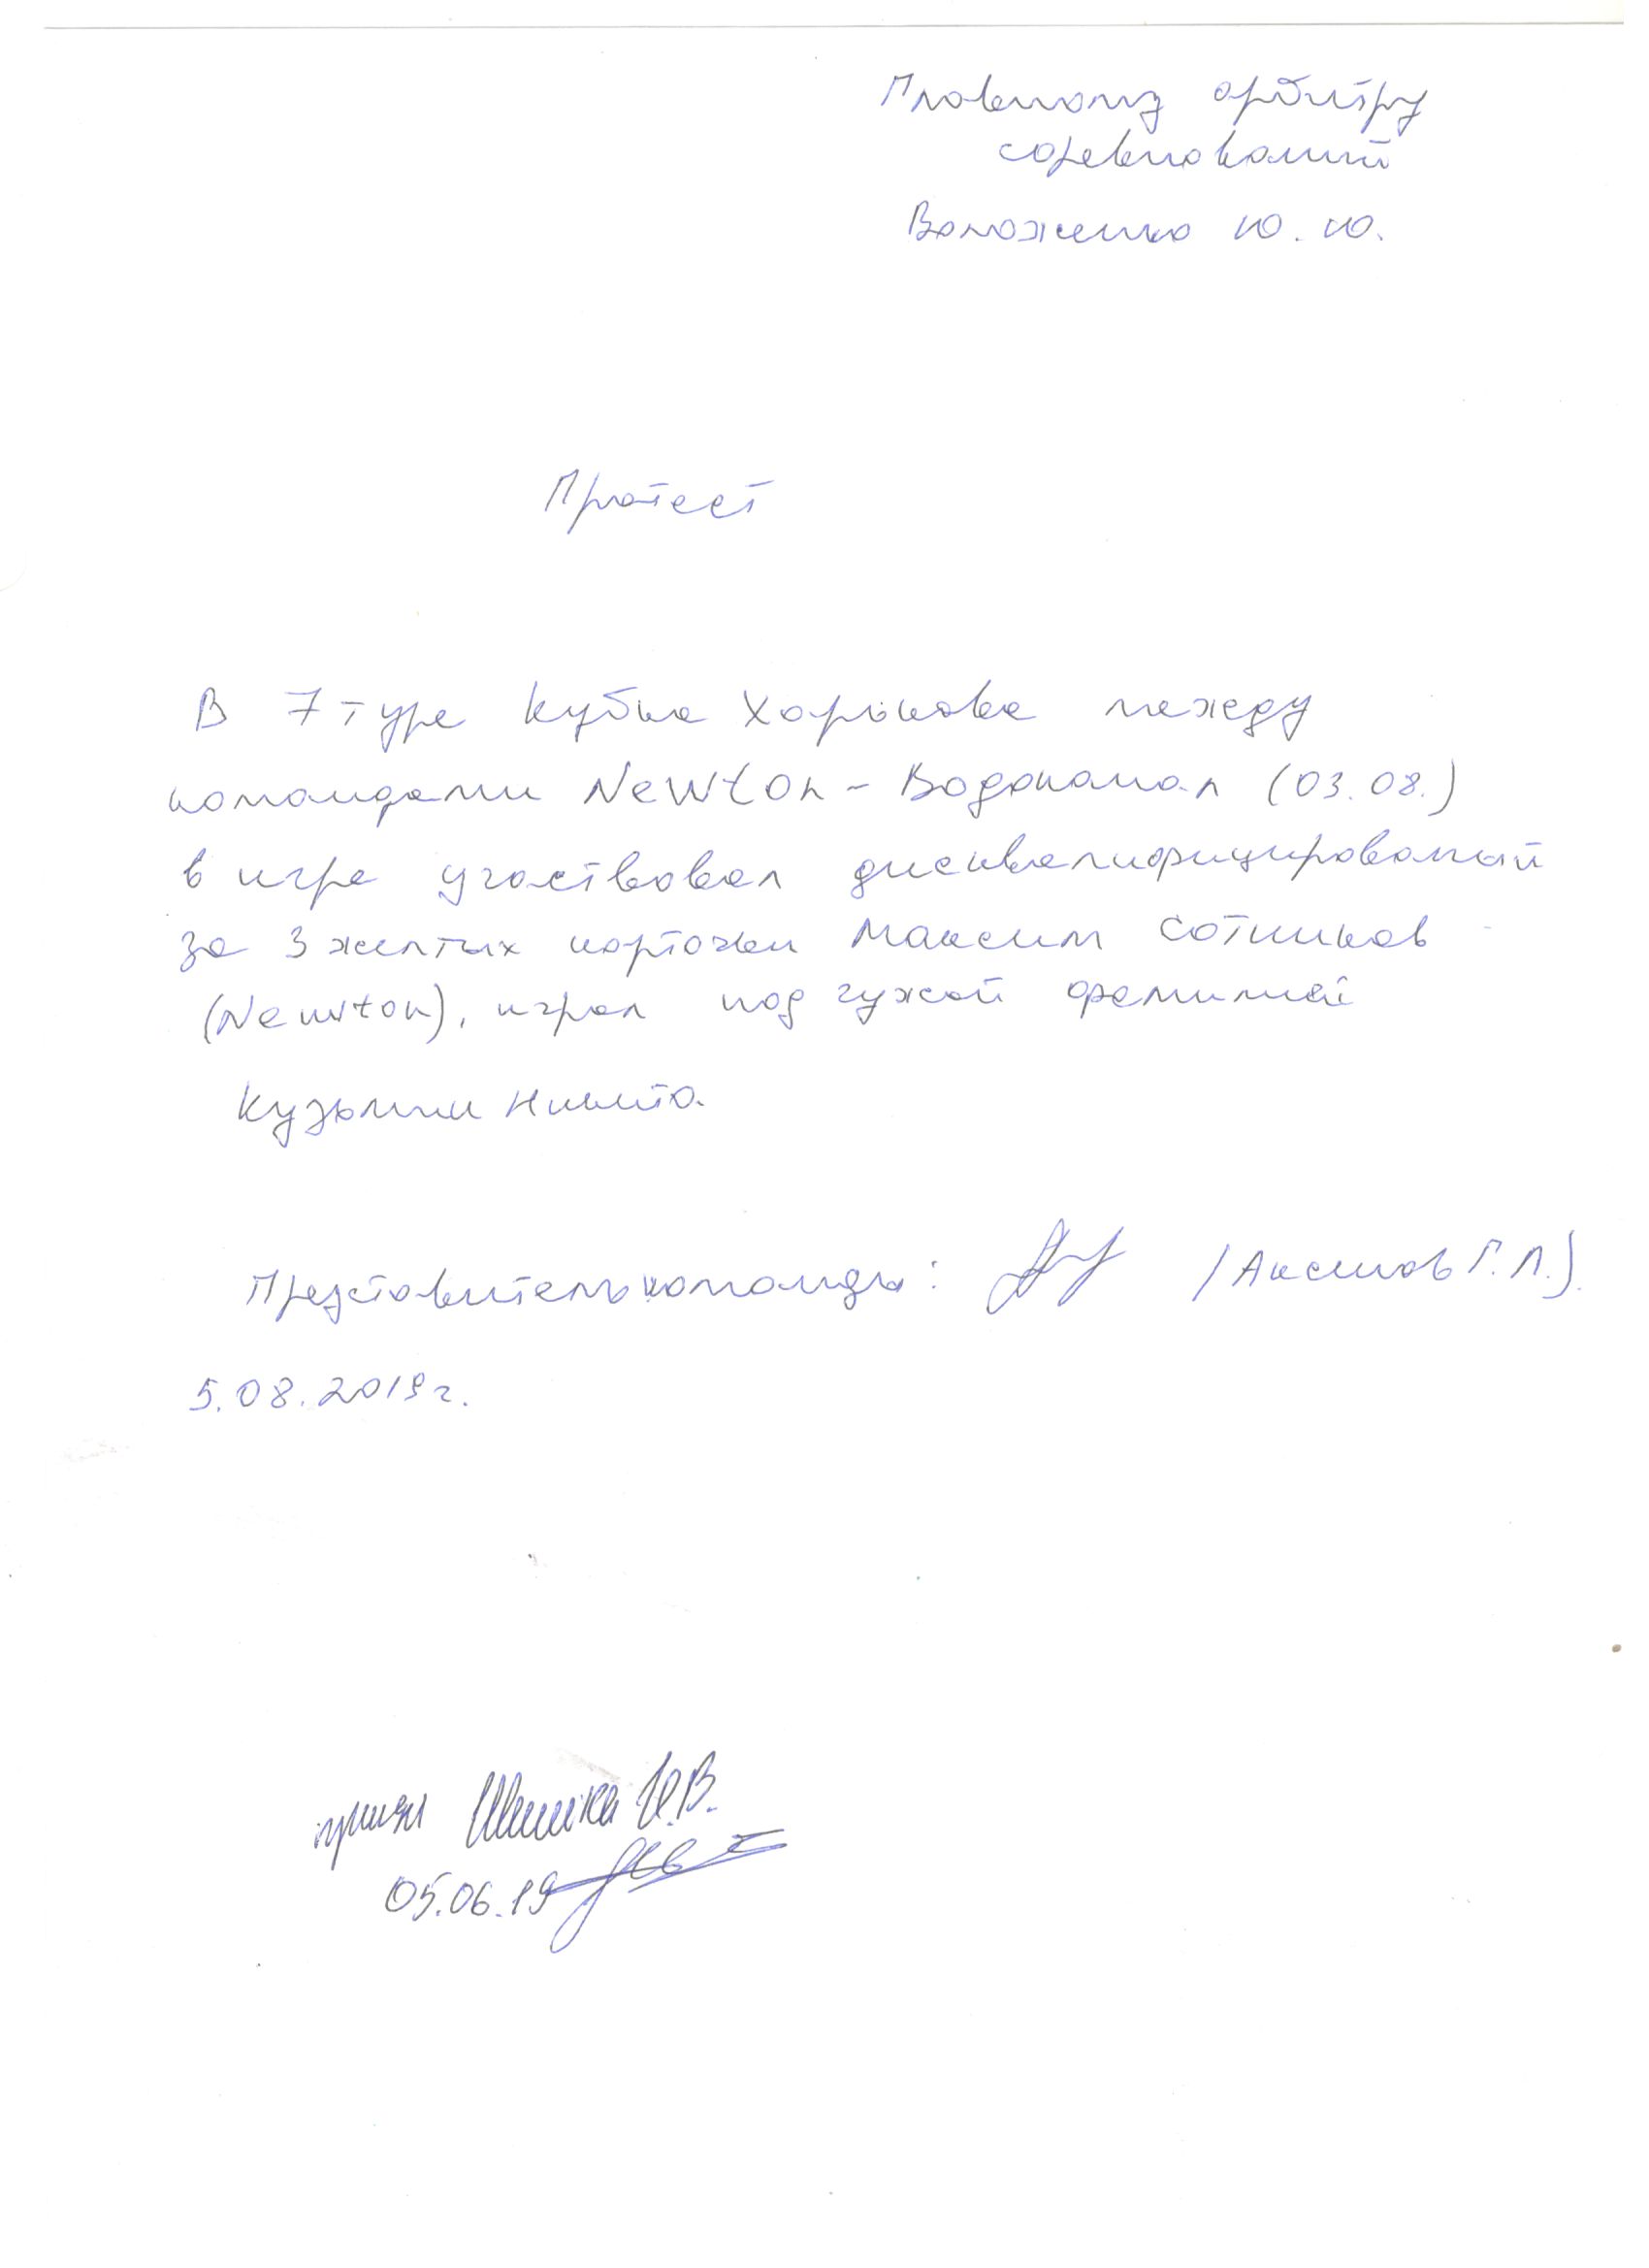 Главному арбитру
соревнований
Воложенко Ю. Ю.
Протест
В 7 туре Кубка Харькова между
командами Newton - Водоканал (03.08.)
в игре участвовал дисквалифицированый
за 3 желтых карточки Максим Сотников
(Newton), играл под чужой фамилией
Кузьмин Никита.
Представитель команды: (Аксенов Г. Л.).
5.08.2019 г.
принял И.В.
05.06.19